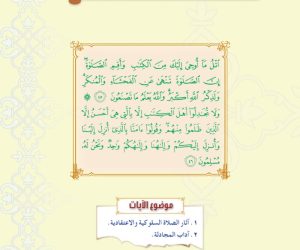 ٱتۡلُ مَآ أُوحِيَ إِلَيۡكَ مِنَ ٱلۡكِتَٰبِ وَأَقِمِ ٱلصَّلَوٰةَۖ
إِنَّ ٱلصَّلَوٰةَ تَنۡهَىٰ عَنِ ٱلۡفَحۡشَآءِ وَٱلۡمُنكَرِۗ
وَلَذِكۡرُ ٱللَّهِ أَكۡبَرُۗ وَٱللَّهُ يَعۡلَمُ مَا تَصۡنَعُونَ ٤٥ ۞
وَلَا تُجَٰدِلُوٓاْ أَهۡلَ ٱلۡكِتَٰبِ إِلَّا بِٱلَّتِي هِيَ أَحۡسَنُ إِلَّا
ٱلَّذِينَ ظَلَمُواْ مِنۡهُمۡۖ وَقُولُوٓاْ ءَامَنَّا بِٱلَّذِيٓ أُنزِلَ إِلَيۡنَا
وَأُنزِلَ إِلَيۡكُمۡ وَإِلَٰهُنَا وَإِلَٰهُكُمۡ وَٰحِدٞ وَنَحۡنُ لَهُۥ
مُسۡلِمُونَ ٤٦
موضوع الآيات
١ . آثار الصلاة السلوكية والاعتقادية .
٢ . آداب المجادلة .